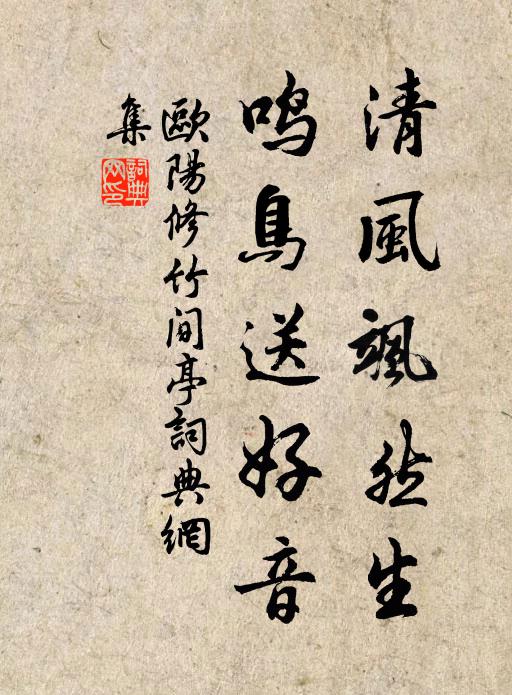 清風颯然生
鳴鳥送好音
歐陽修竹间亭詞典網
集
詞典
网印